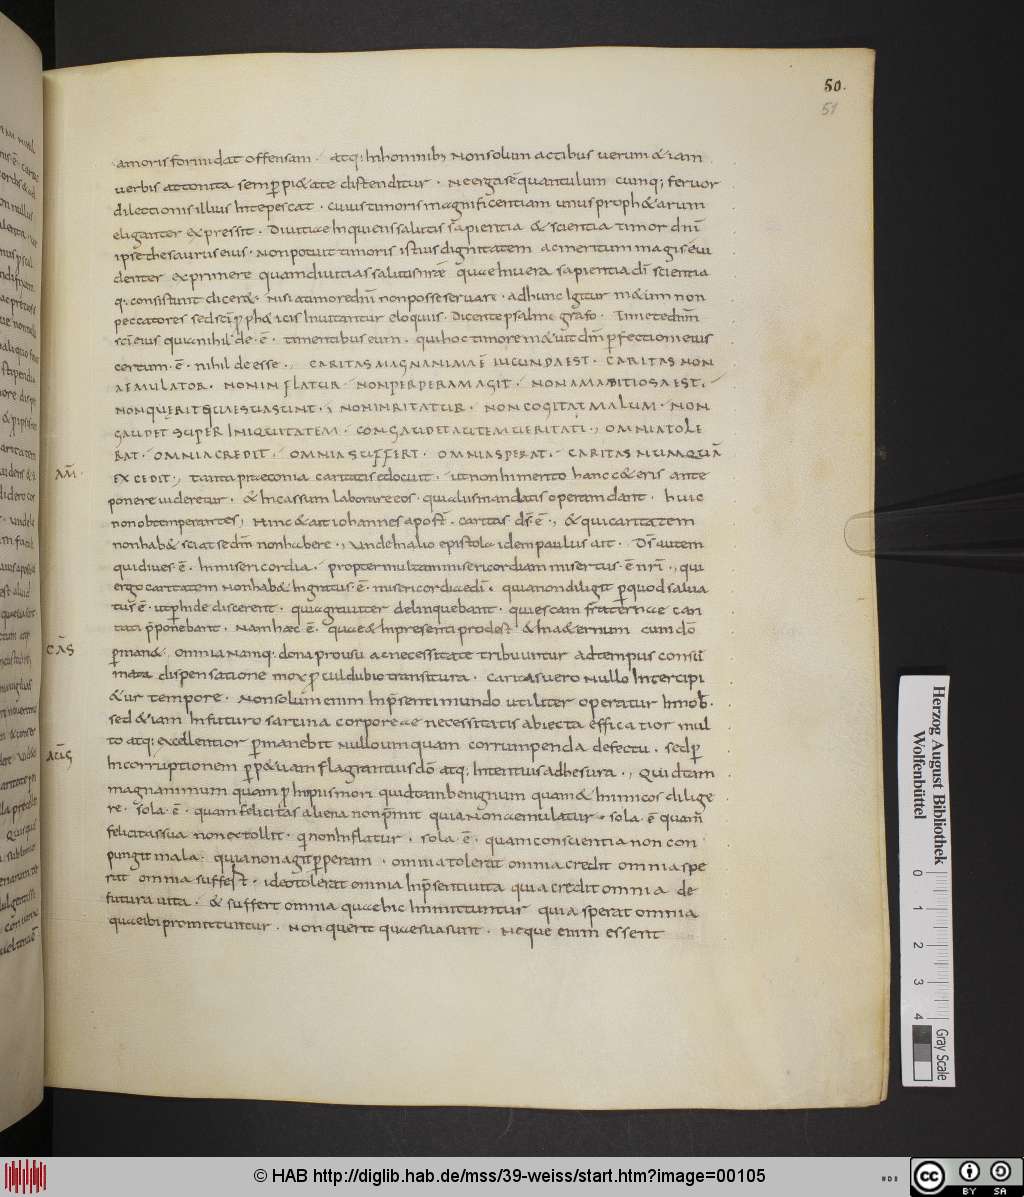 50.
51
amoris formidat offensam · atq; in hominib; non solum actibus uerum & iam
uerbis attonita semp̱ pi&ate distenditur · ne erga se quantulum cumq; feruor
dilectionis illius intepescat · cuius timoris magnificentiam unus proph&arum
eliganter expressit · Diuitiae inquiens salutis sapientia & scientia timor dn̄i
ipse thesaurus eius · Non potuit timoris istius dignitatem ac meritum magis eui
denter exprimere quam diuitias salutis nr̄ae quae in uera sapientia dī scientia
q; consistunt dicer& · nisi a timore dn̄i non posse seruari · ad hunc igitur m&um non
peccatores sed sc̄i ꝓph&icis inuitantur eloquiis · Dicente psalmi grafo · Timete dn̄m
sc̄i eius quia nihil de·ē· timentibus eum · qui hoc timore m&uit dn̄m p̱fectioni eius
certum ·ē· nihil deesse ., CARITAS MAGNANIMA Ē IUCUNDA EST · CARITAS NON
AEMULATOR · NON INFLATUR · NON PERPERAM AGIT · NON AMBITIOSA EST ·
NON QUERIT QUAE SUA SUNT ·, NON INRITATUR · NON COGITAT MALUM · NON
GAUDET SUPER INIQUITATEM · CONGAUDET AUTEM UERITATI ·, OMNIA TOLE
RAT · OMNIA CREDIT · OMNIA SUFFERT · OMNIA SPERAT · CARITAS NUMQUĀ
AM̄ ·
EXCEDIT ·, tanta praeconia caritatis edocuit · ut non inmerito hanc c&eris ante
ponere uideretur · & incassum laborare eos · qui aliis mandatis operam dant · huic
non obtemperantes, Hinc & ait iohannes apost̄ · caritas ds̄·ē·, & qui caritatem
non hab& sciat se dm̄ non habere ·, Unde in alio epistola idem paulus ait · Ds̄ autem
qui diues ·ē· in misericordia · propter multam misericordiam misertus ·ē nr̄i ·, qui
ergo caritatem non hab& ingratus ·ē· misericordiae dī · quia non diligit p̱ quod salua
tus ē · ut p̱hinde discerent · quia grauiter delinquebant · qui escam fraternae cari
CĀS
tati p̄ponebant · Nam haec ·ē· quae & in presenti prodest & in aeternum cum dō
p̱man& · omnia namq; dona pro usu ac necessitate tribuuntur ad tempus consū
mata dispensatione mox ꝓcul dubio transitura · caritas uero nullo intercipi
&ur tempore · Non solum enim in p̄senti mundo utiliter operatur in nob̄ ·
sed &iam in futuro sartina corporeae necessitatis abiecta efficatior mul
ACIS
to atq; excellentior p̱manebit nullo umquam corrumpenda defectu · sed p̱
incorruptionem p̱p&uam flagrantius dō atq; intentius adhesura ·, Quid tam
magnanimum quam ꝓ impiis mori quid tam benignum quam & inimicos dilige
re · sola ·ē · quam felicitas aliena non p̄mit quia non aemulatur · sola ·ē quam
felicitas sua non extollit · q̱ non inflatur · sola ·ē· quam conscientia non con
pungit mala · quia non agit p̱peram · omnia tolerat omnia credit omnia spe
rat omnia suffert · ideo tolerat omnia in p̄senti uita quia credit omnia de
futura uita · & suffert omnia quae hic inmittuntur quia sperat omnia
quae ibi promittuntur · Non querit quae sua sunt · Neque enim essent
Herzog August Bibliothek
Wolfenbüttel
0 1 2 3 4
Gray Scale
© HAB http://diglib.hab.de/mss/39-weiss/start.htm?image=00105
CC BY SA